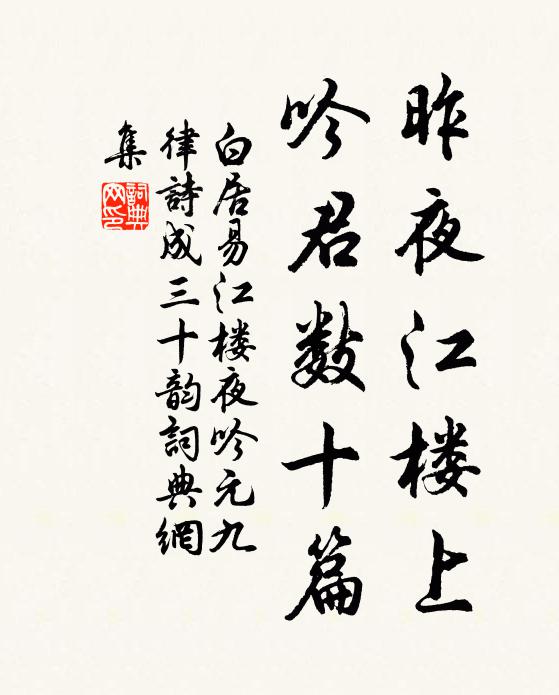 昨夜江楼上
吟君数十篇
白居易江楼夜吟元九
律詩成三十韵詞典網
集
詞典网印